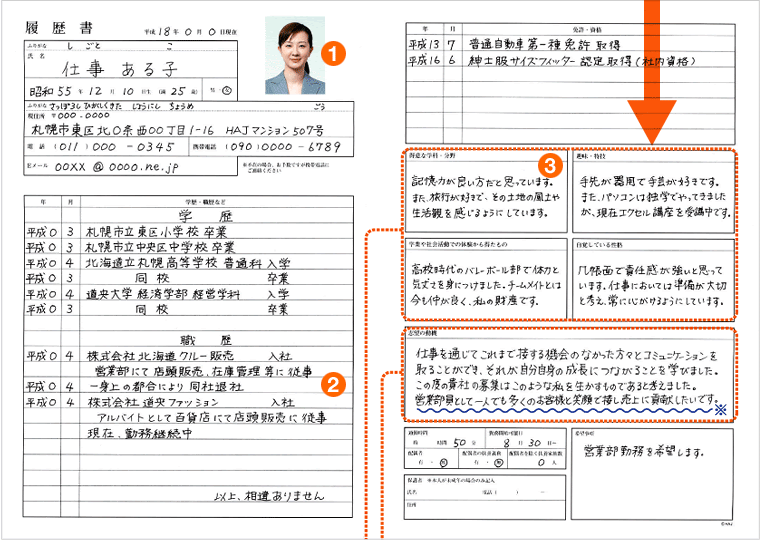 履歴書 平成18年0月0日現在
ふりがな しごと こ
氏名
仕事 ある子
昭和55年12月10日生(満25歳) 男・女
ふりがな さっぽろし ひがしくきた じょうにし ちょうめ ごう
現住所 〒000-0000
札幌市東区北0条西00丁目1-16 HAJマンション507号
電話 (011)000-0345 携帯電話 (090)0000-6789
Eメール 00XX@0000.ne.jp ※不在の場合、お手数ですが携帯電話にご連絡ください
1
年 月 学歴・職歴など
学歴
平成0 3 札幌市立東区小学校 卒業
平成0 3 札幌市立中央区中学校 卒業
平成0 4 北海道立札幌高等学校 普通科 入学
平成0 3 同校 卒業
平成0 4 道央大学 経済学部 経営学科 入学
平成0 3 同校 卒業
職歴
平成0 4 株式会社 北海道クルー販売 入社
営業部にて店頭販売、在庫管理等に従事
平成0 4 一身上の都合により同社退社
平成0 4 株式会社 道央ファッション 入社
アルバイトとして百貨店にて店頭販売に従事
現在、勤務継続中
以上、相違ありません
2
年 月 免許・資格
平成13 7 普通自動車第一種免許 取得
平成16 6 紳士服サイズフィッター 認定取得(社内資格)
3
得意な学科・分野
記憶力が良い方だと思っています。
また、旅行が好きで、その土地の風土や
生活観を感じるようにしています。
趣味・特技
手先が器用で手芸が好きです。
また、パソコンは独学でやってきました
が、現在エクセル講座を受講中です。
学業や社会活動での体験から得たもの
高校時代のバレーボール部で体力と
気丈さを身につけました。チームメイトとは
今も仲が良く、私の財産です。
自覚している性格
几帳面で責任感が強いと思って
います。仕事においては準備が大切
と考え、常に心がけるようにしています。
志望の動機
仕事を通じてこれまで接する機会のなかった方々とコミュニケーションを
取ることができ、それが自分自身の成長につながることを学びました。
この度の貴社の募集はこのような私を生かすものであると考えました。
営業部員として一人でも多くのお客様と笑顔で接し売上に貢献したいです。
※
通勤時間 勤務開始可能日
時間 50分 8月30日〜
配偶者 配偶者の扶養義務 配偶者を除く扶養家族数
有・無 有・無 0人
希望事項
営業部勤務を希望します。
保護者 ※本人が未成年の場合のみ記入
氏名 電話( ) -
住所